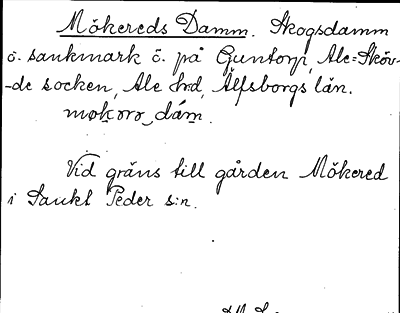 Mökereds Damm. Skogsdamm
o. sankmark ö. på Guntorp, Ale-Sköv-
-de socken, Ale hd, Älfsborgs län.
møkǝrǝ dám.
Vid gräns till gården Mökered
i Sankt Peder s:n.